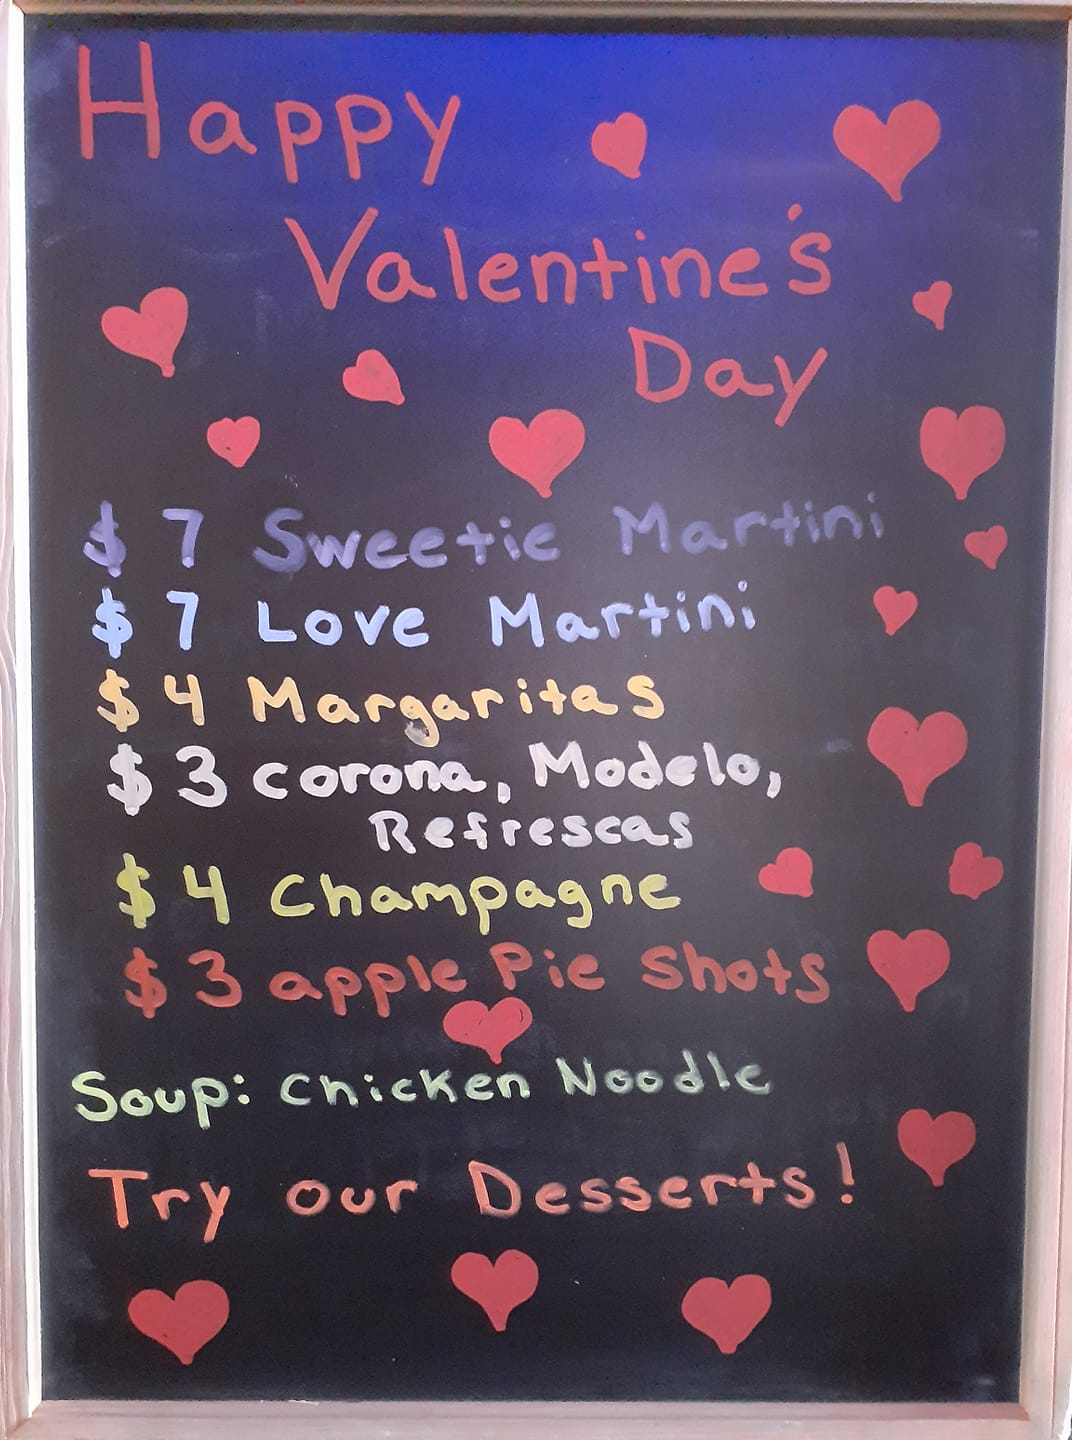 Happy
Valentine's
Day
$ 7 Sweetie Martini
$ 7 Love Martini
$ 4 Margaritas
$ 3 Corona, Modelo,
Refrescas
$ 4 Champagne
$ 3 apple Pie Shots
Soup: Chicken Noodle
Try our Desserts!